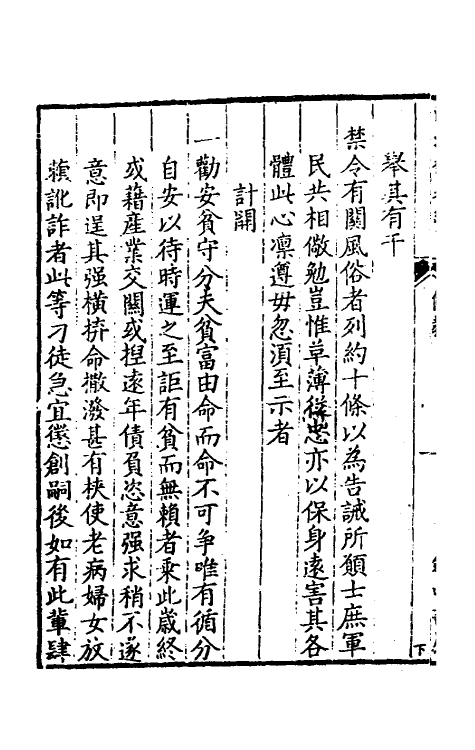 舉其有干
禁令有關風俗者列約十條以為告誡所願士庶軍
民共相儆勉豈惟草薄從忠亦以保身遠害其各
體此心凜遵毋忽須至示者
計開
一勸安貧守分夫貧富由命而命不可争唯有循分
自安以待時運之至詎有貧而無賴者乗此歲終
或藉産業交關或揑遠年債負恣意强求稍不遂
意即逞其强橫拚命撒潑甚有挾使老病婦女放
蘓訛詐者此等刁徒急宜懲創嗣後如有此輩肆
下